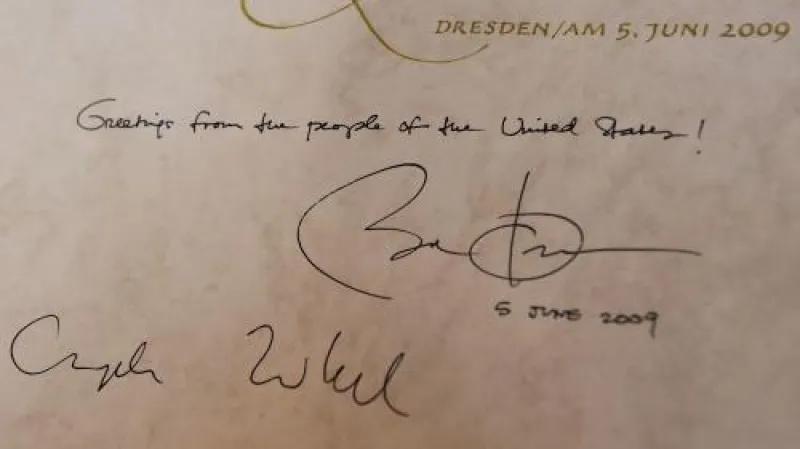 DRESDEN/AM 5. JUNI 2009
Greetings from the people of the United States!
5 JUNE 2009
Angela Merkel